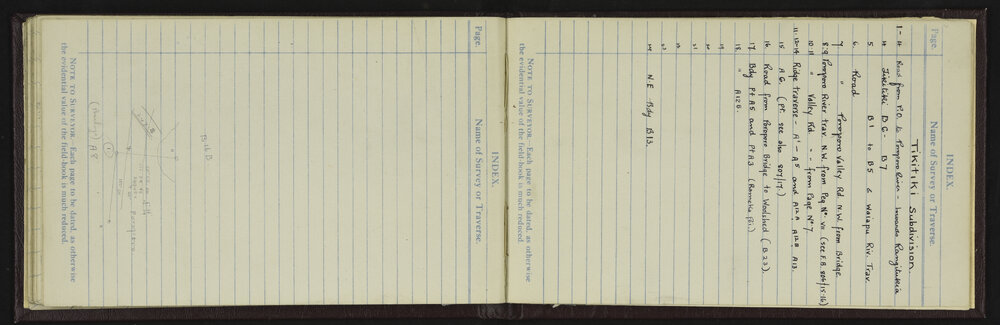 INDEX.
Page. Name of Survey or Traverse.
Tikitiki Subdivision.
1-4 Road from P.O. to Poroporo River - towards Rangitukia
4 Tikitiki B6 - B7
5 B1 to B5 & Waiapu Riv. Trav.
6. Road
7 " Poroporo Valley Rd N.W. from Bridge
8,9 Poroporo River trav. N.W. from Peg No. VII (see F.B. 806/15.16)
10.11 " Valley Rd " - from Page No 7
11.12-14 Ridge traverse - A1 - A5 and A12A A12B A13.
15 A6. (Pt. see also 807/17.)
16. Road from Poropore Bridge to Woolshed (B23).
17. Bdy Pt A5 and Pt A3
18. " A12B.
19
20
21
22
23
24 N.E Bdy B13.
NOTE TO SURVEYOR.—Each page to be dated, as otherwise the evidential value of the field-book is much reduced.
INDEX.
Page. Name of Survey or Traverse.
B16B
A8
NOTE TO SURVEYOR.—Each page to be dated, as otherwise the evidential value of the field-book is much reduced.